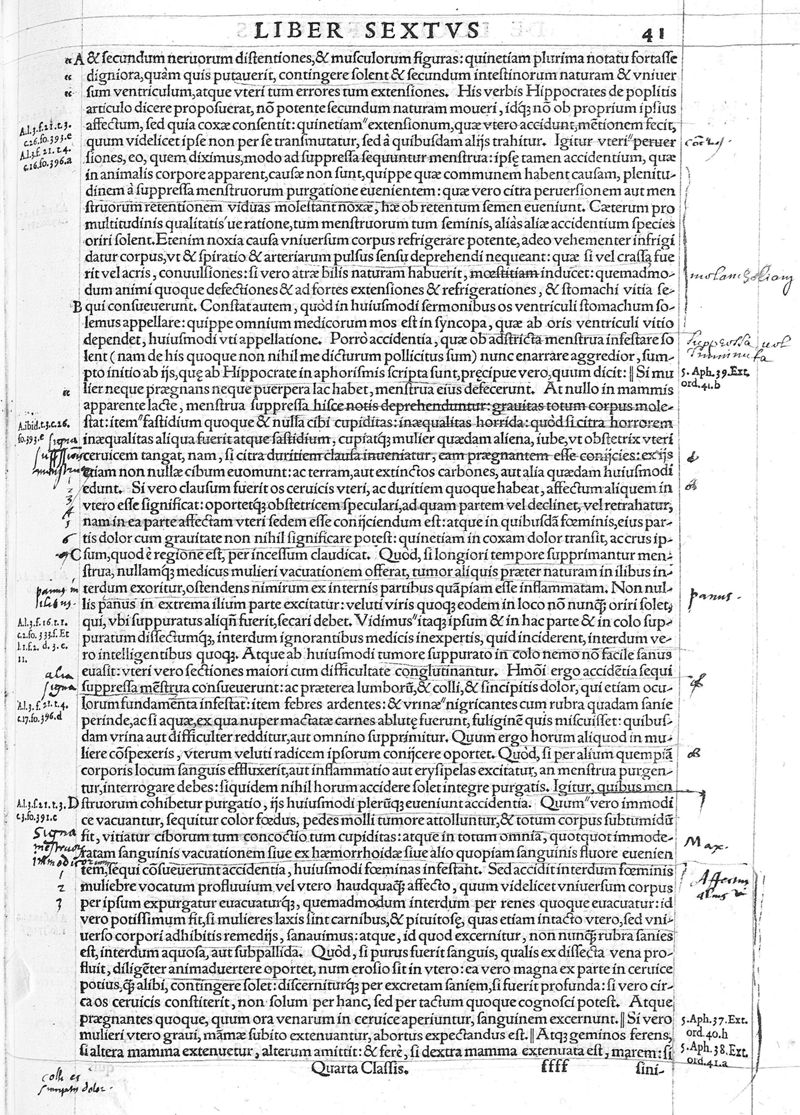 LIBER SEXTVS
41
A & secundum neruorum distentiones,& musculorum figuras: quinetiam plurima notatu fortasse
digniora,quàm quis putauerit, contingere solent & secundum intestinorum naturam & vniuer
sum ventriculum,atque vteri tum errores tum extensiones. His verbis Hippocrates de poplitis
articulo dicere proposuerat, nō potente secundum naturam moueri, idq́; nō ob proprium ipsius
affectum, sed quia coxæ consentit: quinetiam "extensionum,quæ vtero accidunt,mētionem fecit,
quum videlicet ipse non per se transmutatur, sed à quibusdam alijs trahitur. Igitur vteri "peruer
siones, eo, quem diximus,modo ad suppressa sequuntur menstrua: ipsę tamen accidentium, quæ
in animalis corpore apparent,causæ non sunt,quippe quæ communem habent causam, plenitu-
dinem à suppressa menstruorum purgatione euenientem: quæ vero citra peruersionem aut men
struorum retentionem viduas molestant noxæ, hæ ob retentum semen eueniunt. Cæterum pro
multitudinis qualitatis'ue ratione,tum menstruorum tum seminis, aliàs aliæ accidentium species
oriri solent.Etenim noxia causa vniuersum corpus refrigerare potente, adeo vehementer infrigi
datur corpus,vt & spiratio & arteriarum pulsus sensu deprehendi nequeant: quæ si vel crassa fue
rit vel acris, conuulsiones: si vero atræ bilis naturam habuerit, mœstitiam inducet: quemadmo-
dum animi quoque defectiones & ad fortes extensiones & refrigerationes, & stomachi vitia se-
B qui consueuerunt. Constat autem, quòd in huiusmodi sermonibus os ventriculi stomachum so-
lemus appellare: quippe omnium medicorum mos est in syncopa, quæ ab oris ventriculi vitio
dependet, huiusmodi vti appellatione. Porrò accidentia, quæ ob adstricta menstrua infestare so
lent ( nam de his quoque non nihil me dicturum pollicitus sum) nunc enarrare aggredior, sum-
pto initio ab ijs,quę ab Hippocrate in aphorismis scripta sunt,pręcipue vero,quum dicit: ‖ Si mu
lier neque prægnans neque puerpera lac habet, menstrua eius defecerunt. At nullo in mammis
apparente lacte, menstrua suppressa hisce notis deprehenduntur: grauitas totum corpus mole-
stat: item "fastidium quoque & nulla cibi cupiditas: inæqualitas horrida: quòd si citra horrorem
inæqualitas aliqua fuerit atque fastidium, cupiatq́; mulier quædam aliena, iube,vt obstetrix vteri
ceruicem tangat, nam, si citra duritiem clausa inueniatur, eam prægnantem esse conijcies: ex ijs
etiam non nullæ cibum euomunt: ac terram,aut extinctos carbones, aut alia quædam huiusmodi
edunt. Si vero clausum fuerit os ceruicis vteri, ac duritiem quoque habeat, affectum aliquem in
vtero esse significat: oportetq́; obstetricem speculari,ad quam partem vel declinet, vel retrahatur,
nam in ea parte affectam vteri sedem esse conijciendum est: atque in quibusdā fœminis,eius par-
tis dolor cum grauitate non nihil significare potest: quinetiam in coxam dolor transit, ac crus ip-
C sum,quod è regione est, per incessum claudicat. Quòd, si longiori tempore supprimantur men-
strua, nullamq́; medicus mulieri vacuationem offerat, tumor aliquis præter naturam in ilibus in-
terdum exoritur,ostendens nimirum ex internis partibus quāpiam esse inflammatam. Non nul-
lis panus in extrema ilium parte excitatur: veluti viris quoq; eodem in loco nō nunq̃; oriri solet,
qui, vbi suppuratus aliqñ fuerit,secari debet. Vidimus "itaq́; ipsum & in hac parte & in colo sup-
puratum dissectumq́;, interdum ignorantibus medicis inexpertis, quid inciderent, interdum ve-
ro intelligentibus quoq;. Atque ab huiusmodi tumore suppurato in colo nemo nō facile sanus
euasit: vteri vero sectiones maiori cum difficultate conglutinantur. Hmōi ergo accidētia sequi
suppressa mēstrua consueuerunt: ac præterea lumborū,& colli, & sincipitis dolor, qui etiam ocu-
lorum fundamenta infestat: item febres ardentes: & vrinæ "nigricantes cum rubra quadam sanie
perinde,ac si aquæ,ex qua nuper mactatæ carnes ablutę fuerunt, fuliginē quis miscuisset: quibus-
dam vrina aut difficulter redditur,aut omnino supprimitur. Quum ergo horum aliquod in mu-
liere cōspexeris , vterum veluti radicem ipsorum conijcere oportet. Quòd, si per alium quempiā
corporis locum sanguis effluxerit,aut inflammatio aut erysipelas excitatur, an menstrua purgen-
tur,interrogare debes: siquidem nihil horum accidere solet integre purgatis. Igitur, quibus men
D struorum cohibetur purgatio, ijs huiusmodi plerūq́; eueniunt accidentia. Quum "vero immodi
ce vacuantur, sequitur color fœdus, pedes molli tumore attolluntur,& totum corpus subtumidū
fit, vitiatur ciborum tum concoctio tum cupiditas: atque in totum omnia, quotquot immode-
ratam sanguinis vacuationem siue ex hæmorrhoidæ siue alio quopiam sanguinis fluore euenien
tem,sequi cōsueuerunt accidentia, huiusmodi fœminas infestant. Sed accidit interdum fœminis
muliebre vocatum profluuium vel vtero haudquaq́; affecto, quum videlicet vniuersum corpus
per ipsum expurgatur euacuaturq́;, quemadmodum interdum per renes quoque euacuatur: id
vero potissimum fit,si mulieres laxis sint carnibus,& pituitosę, quas etiam intacto vtero,sed vni-
uerso corpori adhibitis remedijs, sanauimus: atque, id quod excernitur, non nunq́; rubra sanies
est,interdum aquosa, aut subpallida. Quòd, si purus fuerit sanguis, qualis ex dissecta vena pro-
fluit, diligēter animaduertere oportet, num erosio sit in vtero: ea vero magna ex parte in ceruice
potius,q̃; alibi, contingere solet: discerniturq́; per excretam saniem,si fuerit profunda: si vero cir-
ca os ceruicis constiterit , non solum per hanc, sed per tactum quoque cognosci potest. Atque
prægnantes quoque, quum ora venarum in ceruice aperiuntur, sanguinem excernunt. ‖ Si vero
mulieri vtero graui, māmæ subito extenuantur, abortus expectandus est. ‖ Atq; geminos ferens,
si altera mamma extenuetur , alterum amittit: & ferè, si dextra mamma extenuata est, marem: si
Quarta Classis. ffff sini-
A.l.3.f.21.t.3.
c.26.fo.393.e
A.l.3.f. 21. t.4.
c.16.fo.396.a
A.ibid.t.3.c.26.
fo.393.e
signa
1
2
3
4
5
6
A.l.3.f.16.t.1.
c.2.fo. 333.f. Et
l.1.f.2. d. 3. c.
11.
alia
signa
A.l.3. f.21.t.4.
c.17.fo.396.d
A.l.3.f.21.t.3.
c.3.fo.391.e
Signa
1
2
3
5.Aph.39.Ext.
ord.41.b
panus.
Max.
5.Aph.37.Ext.
ord.40.h
5.Aph.38.Ext.
ord.41.a